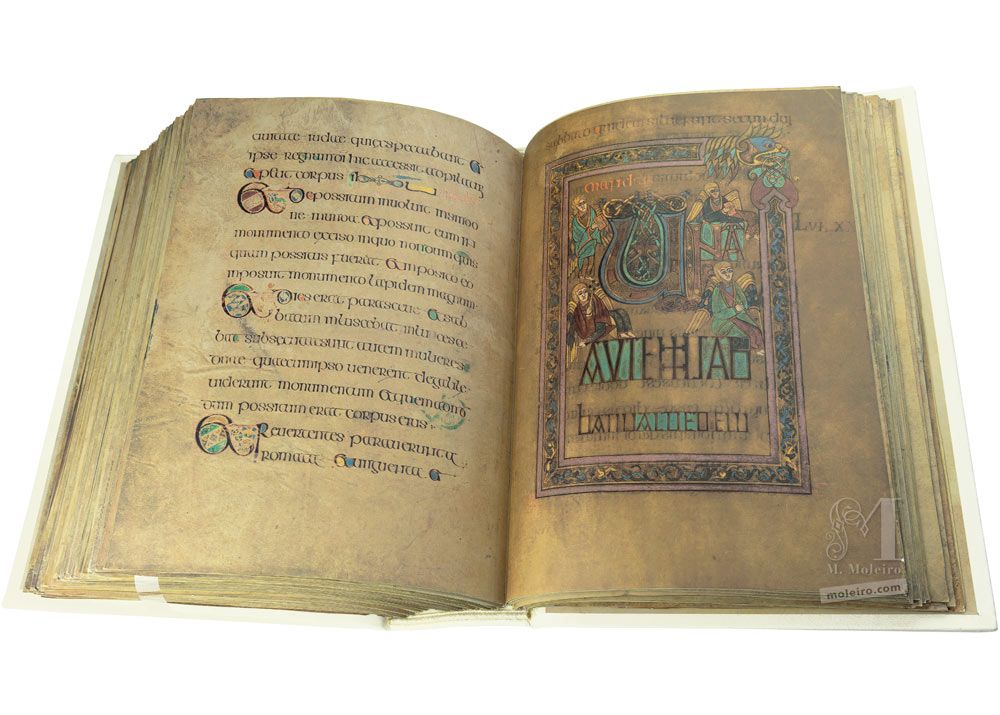 ciuitate iudae qui expectabant &
ipse regnum di hic accessit ad pilatum
& petiit corpus ihu
& depossitum inuoluit in sindo
ne munda & possuit eum in
monumento exciso in quo nondum quis
quam possitus fuerat & imposito eo
imposuit monumento lapidem magnum
& dies erat parasceue & sab
batum inluscebat inluscesce
bat subsecutae sunt autem mulieres
quae cum ipso uenerant de galile
uiderunt monumentum & quem ad mo
dum possitum erat corpus eius
& reuertentes parauerunt a
romata & unguenta &
sabbato quidem siluerunt secundum
U
NA AUTEM SAB
BATI UALDE DELU
M. Moleiro
moleiro.com